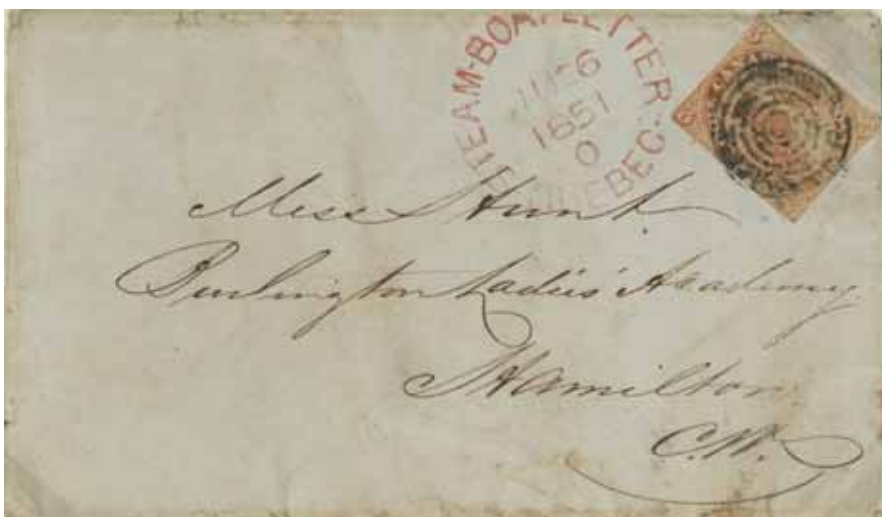 STEAM-BOAT LETTER
QUEBEC
1851
Miss Hunt.
Burlington Ladies' Academy
Hamilton
C.W.